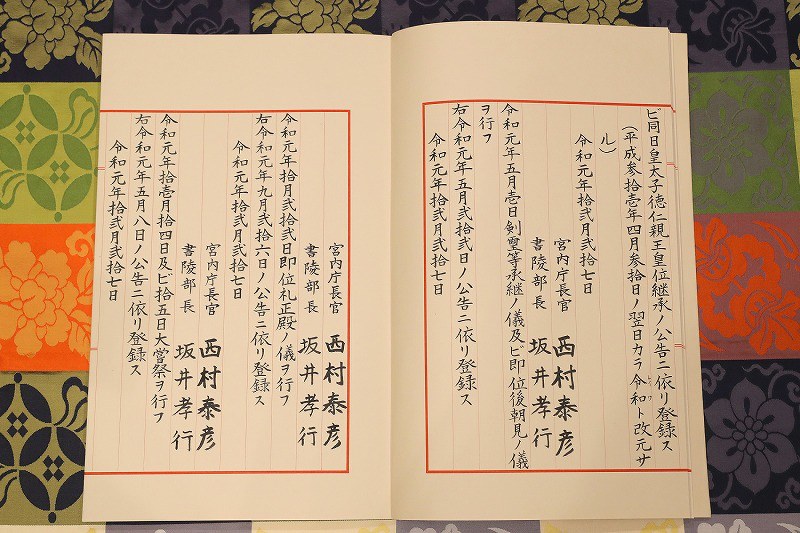 ビ同日皇太子徳仁親王皇位継承ノ公告ニ依リ登録ス
(平成参拾壱年四月参拾日ノ翌日カラ令和ト改元サ
ル)
令和元年拾弐月弐拾七日
宮内庁長官 西村泰彦
書陵部長 坂井孝行
令和元年五月壱日剣璽等承継ノ儀及ビ即位後朝見ノ儀
ヲ行フ
右令和元年五月弐拾弐日ノ公告ニ依リ登録ス
令和元年拾弐月弐拾七日
宮内庁長官 西村泰彦
書陵部長 坂井孝行
令和元年拾月弐拾弐日即位礼正殿ノ儀ヲ行フ
右令和元年九月弐拾六日ノ公告ニ依リ登録ス
令和元年拾弐月弐拾七日
宮内庁長官 西村泰彦
書陵部長 坂井孝行
令和元年拾壱月拾四日及ビ拾五日大嘗祭ヲ行フ
右令和元年五月八日ノ公告ニ依リ登録ス
令和元年拾弐月弐拾七日